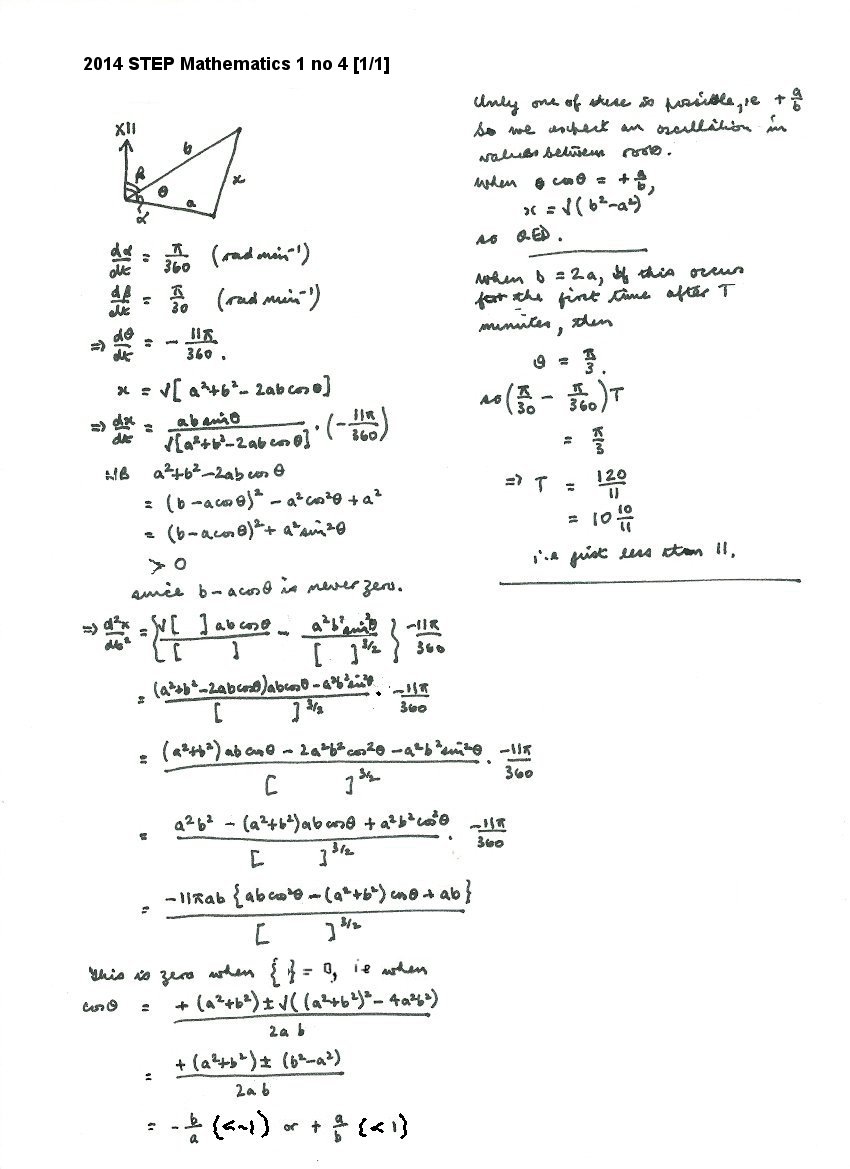 2014 STEP Mathematics 1 no 4 [1/1]
XII
b
β
θ
x
a
α
dα/dt = π/360 (rad min⁻¹)
dβ/dt = π/30 (rad min⁻¹)
⇒ dθ/dt = - 11π/360.
x = √[a²+b²-2ab cosθ]
⇒ dx/dt = ab sinθ/√[a²+b²-2ab cosθ] · (-11π/360)
NB a²+b²-2ab cosθ
= (b-a cosθ)² - a²cos²θ + a²
= (b-a cosθ)² + a² sin²θ
> 0
since b-a cosθ is never zero.
⇒ d²x/dt² = {√[ ] ab cosθ/[ ] - a²b² sin²θ/[ ]^3/2} -11π/360
= (a²+b²-2ab cosθ)ab cosθ - a²b² sin²θ/[ ]^3/2 · -11π/360
= (a²+b²) ab cosθ - 2a²b² cos²θ - a²b² sin²θ/[ ]^3/2 · -11π/360
= a²b² - (a²+b²)ab cosθ + a²b² cos²θ/[ ]^3/2 · -11π/360
= -11πab {ab cos²θ - (a²+b²) cosθ + ab}/[ ]^3/2
This is zero when { } = 0, ie when
cosθ = +(a²+b²) ± √((a²+b²)² - 4a²b²)/2ab
= +(a²+b²) ± (b²-a²)/2ab
= - b/a {<-1} or + a/b {<1}
Only one of these is possible, ie + a/b
So we expect an oscillation in
values between roots.
When cosθ = + a/b,
x = √(b²-a²)
so QED.
When b = 2a, if this occurs
for the first time after T
minutes, then
θ = π/3.
so (π/30 - π/360)T
= π/3
⇒ T = 120/11
= 10 10/11
i.e just less than 11.